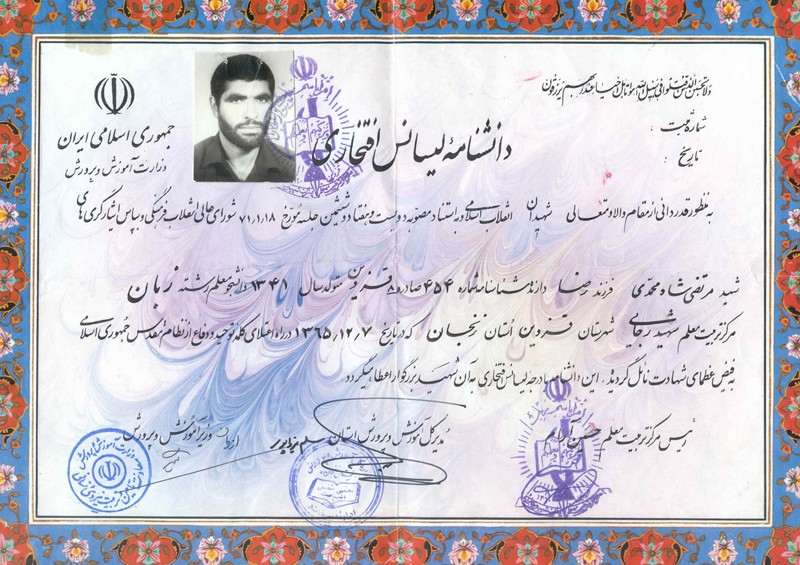 ولا تحسبن الذین قتلوا فی سبیل الله امواتا بل احیاء عند ربهم یرزقون
جمهوری اسلامی ایران
وزارت آموزش و پرورش
شماره ثبت :
تاریخ :
دانشنامهٔ لیسانس افتخاری
به منظور قدردانی از مقام والا و متعالی شهیدان انقلاب اسلامی و به استناد مصوبه دویست و هفتاد و ششمین جلسه مورخ ۷۱/۱/۱۸ شورای عالی انقلاب فرهنگی و بپاس ایثارگری های
شهید مرتضی شاه محمدی فرزند رضا دارنده شناسنامه شماره ۴۵۴ صادره قزوین متولد سال ۱۳۴۱ دانشجو معلم رشته زبان
مرکز تربیت معلم شهید رجایی شهرستان قزوین استان زنجان که در تاریخ ۱۳۶۵/۱۲/۷ در راه اعتلای کلمه توحید و دفاع از نظام مقدس جمهوری اسلامی
به فیض عظمای شهادت نائل گردیده، این دانشنامه با درجه لیسانس افتخاری به آن شهید بزرگوار اعطا میگردد.
رئیس مرکز تربیت معلم حسین
مدیر کل آموزش و پرورش استان
وزیر آموزش و پرورش